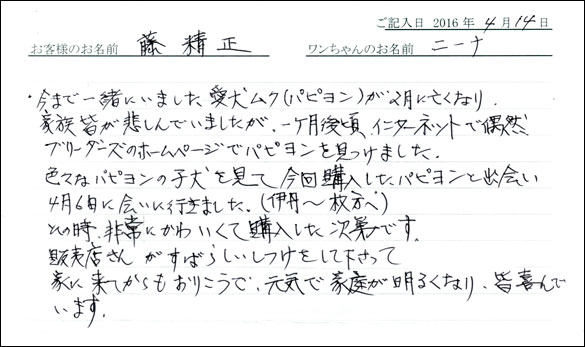 ご記入日 2016年 4月 14日
お客様のお名前 藤 精正 ワンちゃんのお名前 ニーナ
・今まで一緒にいました愛犬ムク(パピヨン)が2月に亡くなり、
家族皆が悲しんでいましたが、一ヶ月後頃、インターネットで偶然
ブリーダーズのホームページでパピヨンを見つけました。
色々なパピヨンの子犬を見て今回購入したパピヨンと出会い
4月6日に会いに行きました。(伊丹〜枚方へ)
その時、非常にかわいくて購入した次第です。
販売店さんがすばらしいしつけをして下さって
家に来てからもおりこうで、元気で家庭が明るくなり、皆喜んで
います。